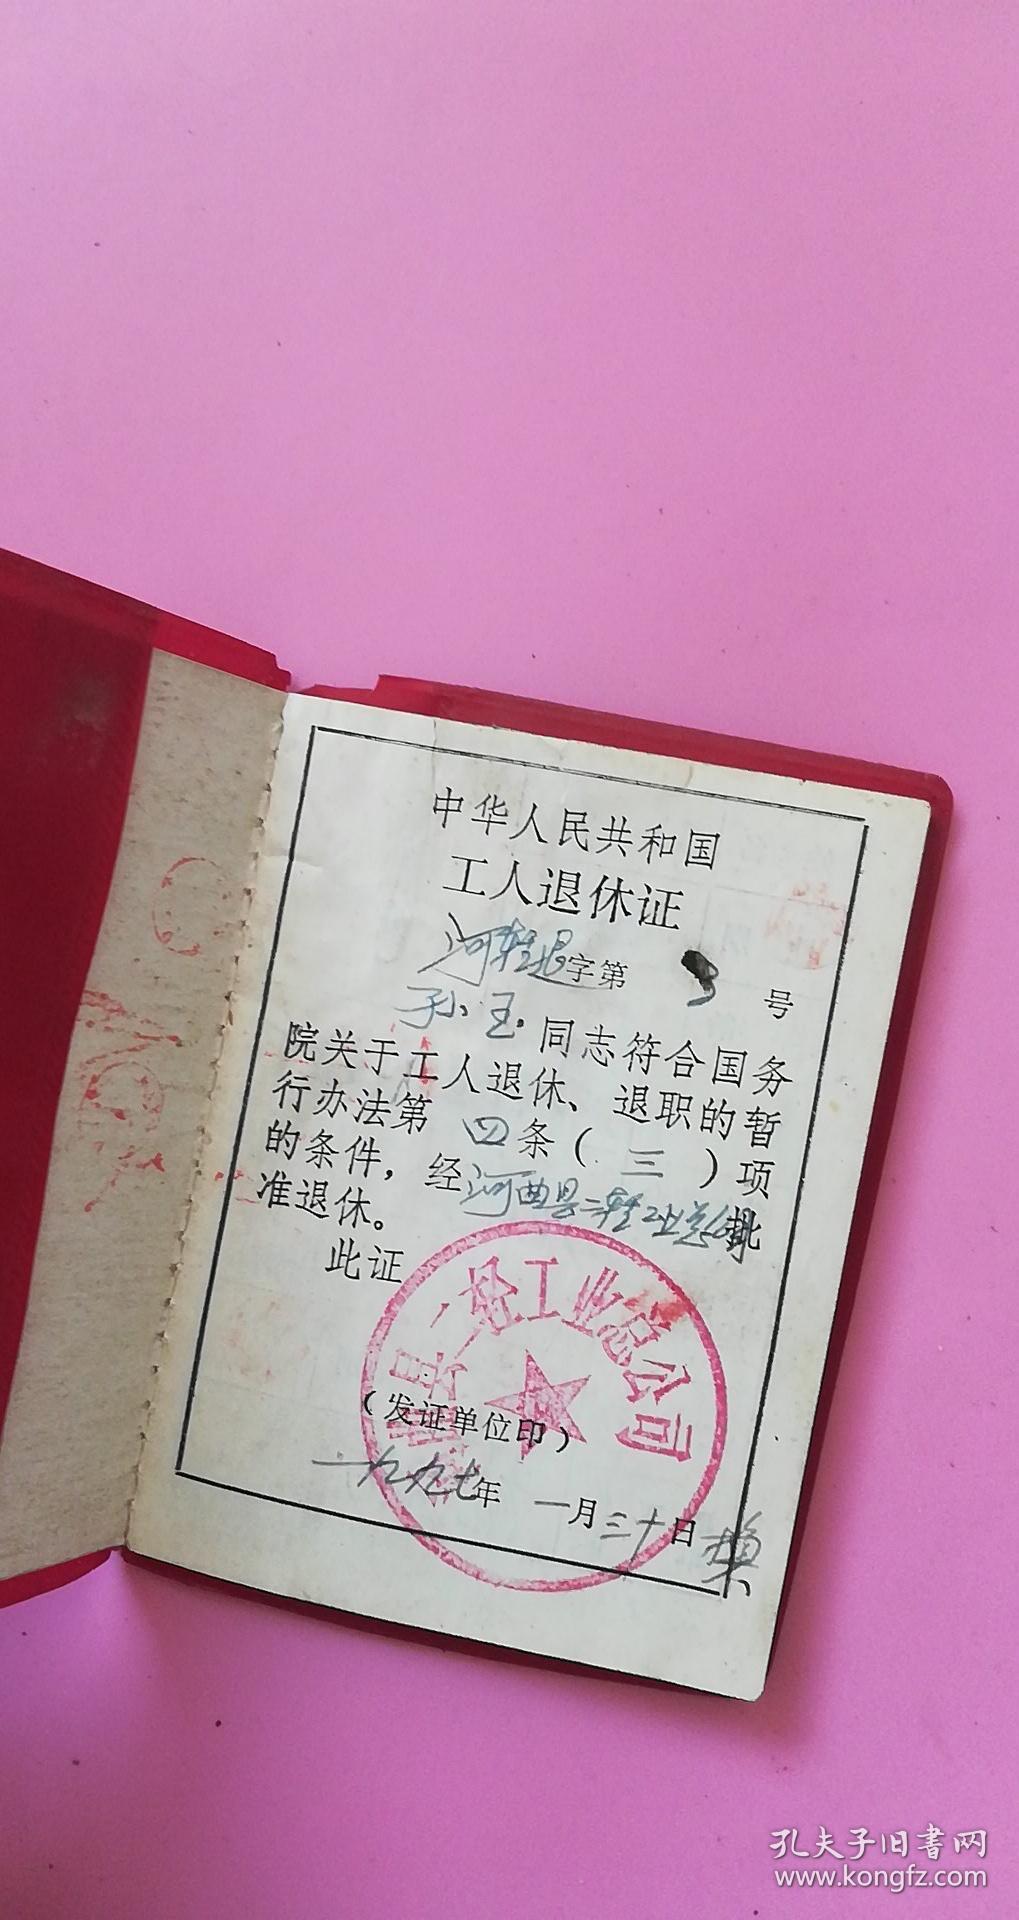 中华人民共和国
工人退休证
河轻退字第 3 号
孙玉 同志符合国务
院关于工人退休、退职的暂
行办法第 四 条（三）项
的条件，经河曲县二轻工业总公司批
准退休。
此证
县二轻工业总公司
（发证单位印）
一九九七年 一月三十日
孔夫子旧书网
www.kongfz.com